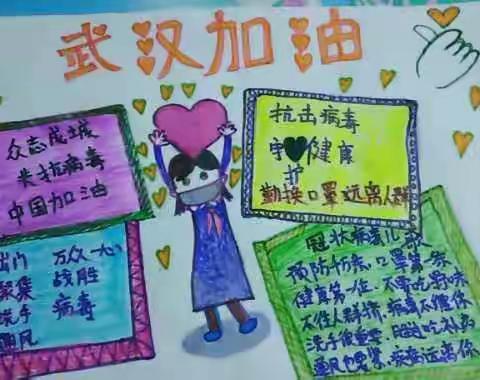 武汉加油
众志成城
共抗病毒
中国加油
抗击病毒
守护健康
勤换口罩远离人群
出门 万众一心
聚集 战胜
洗手 病毒
通风
冠状病毒儿歌
预防传染口罩第一条
健康第一位，不要吃野味
不往人群挤，病毒不理你
洗手很重要，
通风也要紧，疾病远离你